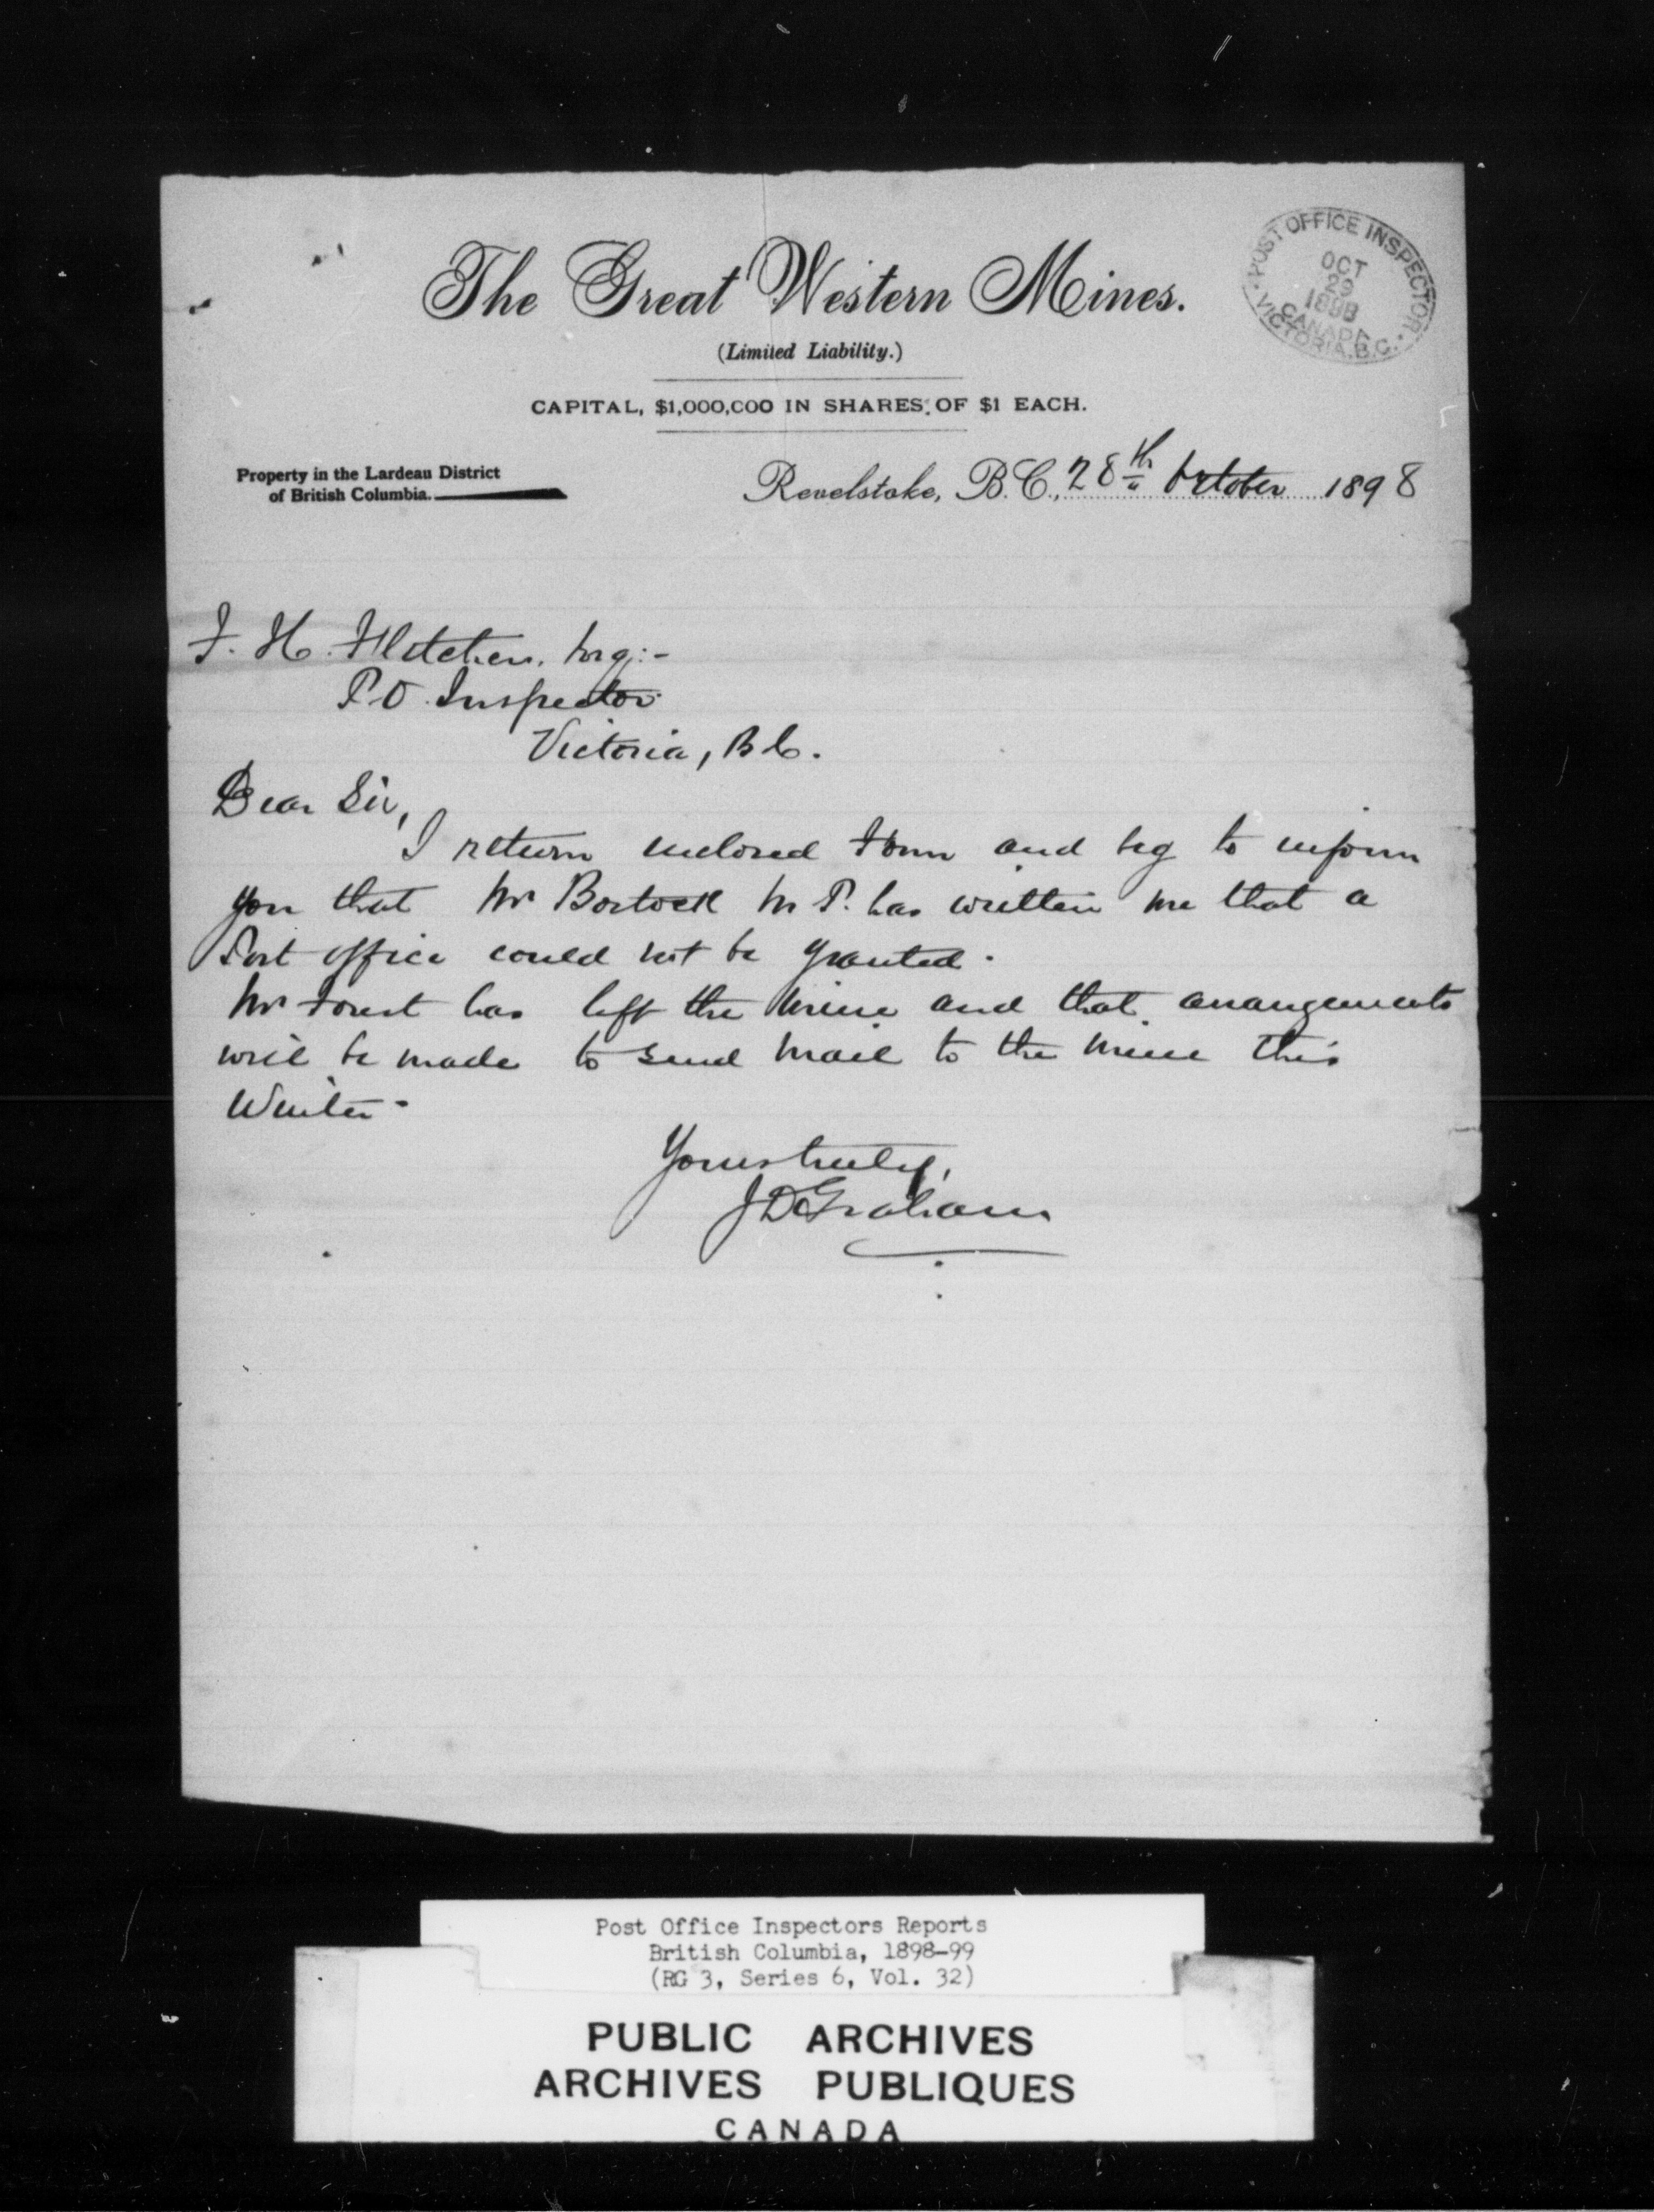 The Great Western Mines.
(Limited Liability.)
CAPITAL, $1,000,000 IN SHARES OF $1 EACH.
POST OFFICE INSPECTOR
OCT
29
1898
CANADA
VICTORIA, B.C.
Property in the Lardeau District
of British Columbia.
Revelstoke, B.C., 28th October 1898
F. H. Fletcher, Esq:-
P.O. Inspector
Victoria, B.C.
Dear Sir,
I return inclosed Form and beg to inform
you that Mr Bostock M.P. has written me that a
Post office could not be granted.
Mr has left the Mine and that arrangements
will be made to send mail to the mine this
Winter.
Yours truly,
J D Graham
Post Office Inspectors Reports
British Columbia, 1898-99
(RG 3, Series 6, Vol. 32)
PUBLIC ARCHIVES
ARCHIVES PUBLIQUES
CANADA